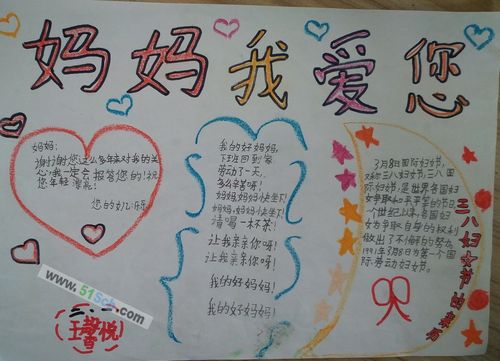 妈妈我爱您
妈妈:
谢谢您这么多年来对我的关
心,我一定会报答您的!祝
您年轻漂亮!
您的女儿
我的好妈妈,
下班回到家,
劳动了一天,
多么辛苦呀!
妈妈,妈妈快坐下!
妈妈,妈妈快坐下!
请喝一杯茶!
让我亲亲你呀!
让我亲亲你呀!
我的好妈妈!
我的好妈妈!
3月8日国际妇女节,
又称三八妇女节,三八国
际妇女节,是世界各国妇
女争取和平平等的节日,
一个世纪以来,各国妇
女为争取自身的权利
做出了不懈的努力
三八妇女节的来历
www.51sch.com